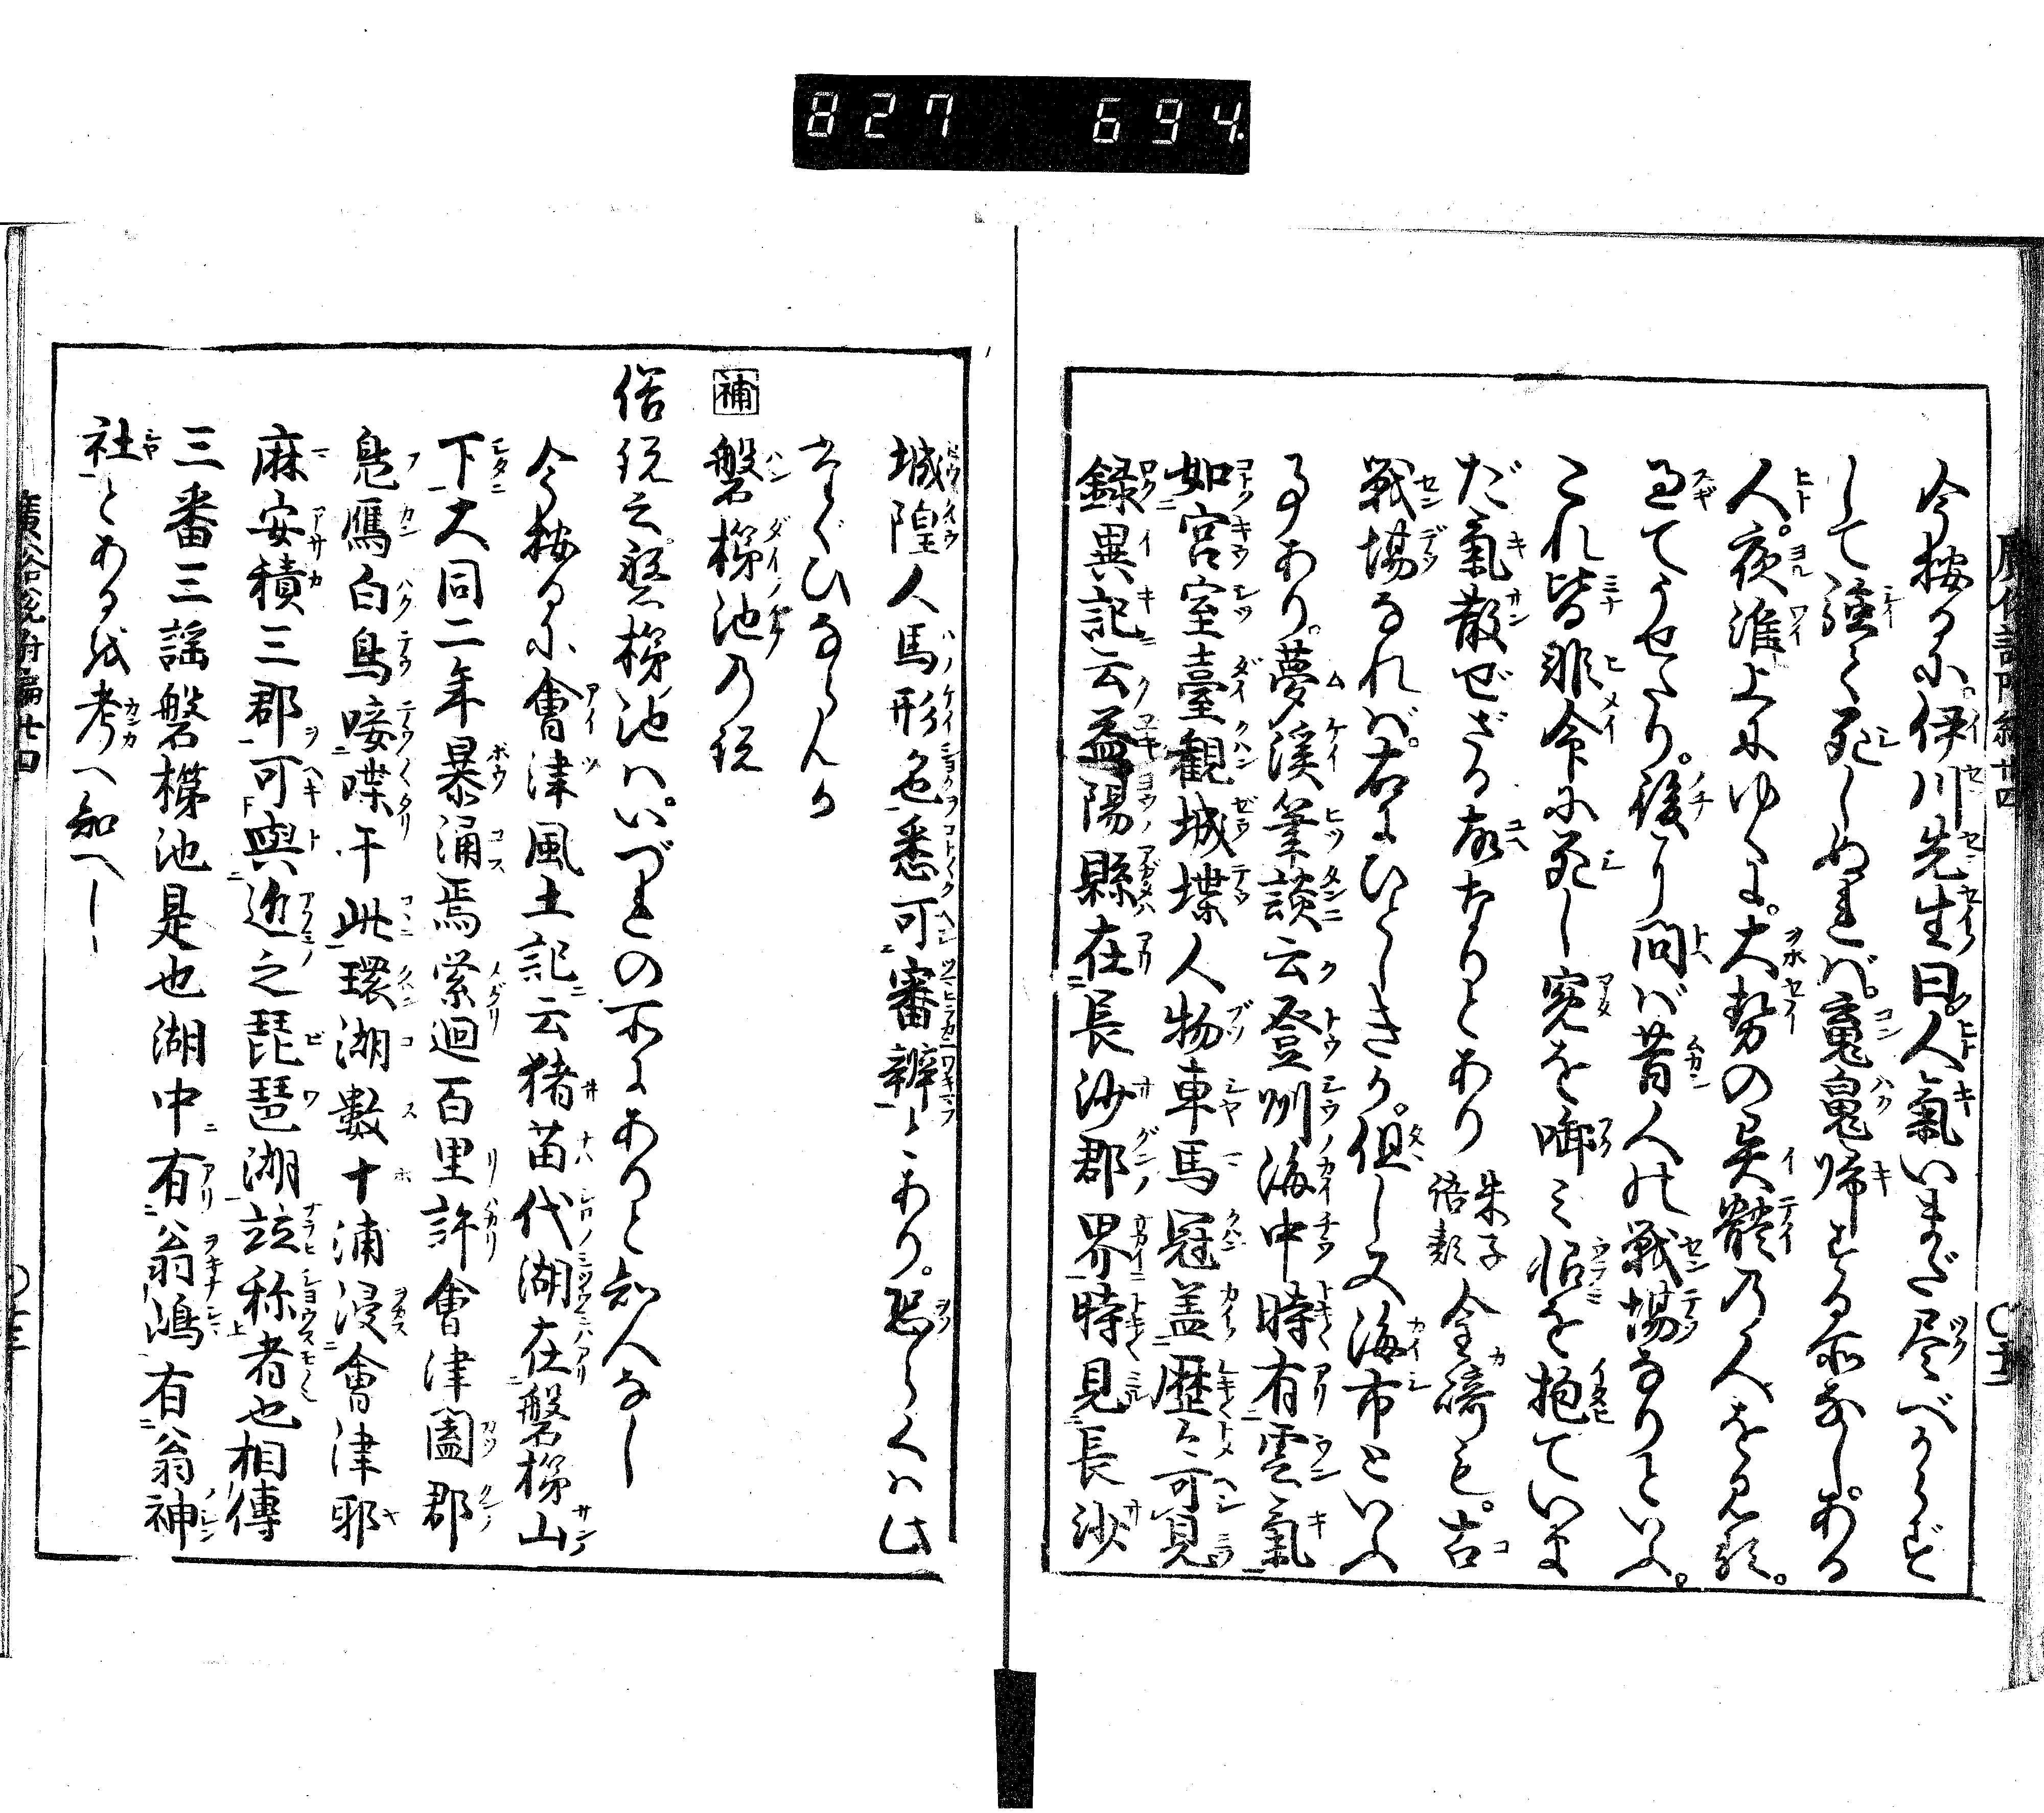 827 694.
今按るに伊川先生曰人氣いまだ尽べからず
して強く死しぬれば。魂魄帰する所なし。ある
人。夜淮上にゆくに。大勢の異體の人を見る。
過てうせたり。後り問ば昔人の戦場なりといふ。
これ皆非命に死し寃を啣み恨を抱ていま
だ氣散ぜざる故なりとあり朱子語類金﨑も。古
戦場なれば。右にひとしきか。但し又海市といふ
事あり。夢溪筆談云登州海中時有雲氣
如宮室臺觀城堞人物車馬冠盖歴々可見
録異記云益陽縣在長沙郡界時見長沙
城隍人馬形色悉可審辨とあり。恐らくは此
たぐひならんか
補 磐梯池の説
俗説云磐梯池は。いづれの所にありと知人なし
今按るに會津風土記云猪苗代湖在磐梯山
下大同二年暴涌焉縈迴百里許會津闔郡
鳧鴈白鳥唼喋于此環湖數十浦浸會津耶
麻安積三郡可與近之琵琶湖竝称者也相傳
三番三謡磐梯池是也湖中有翁嶋有翁神
社とあるを考へ知へし